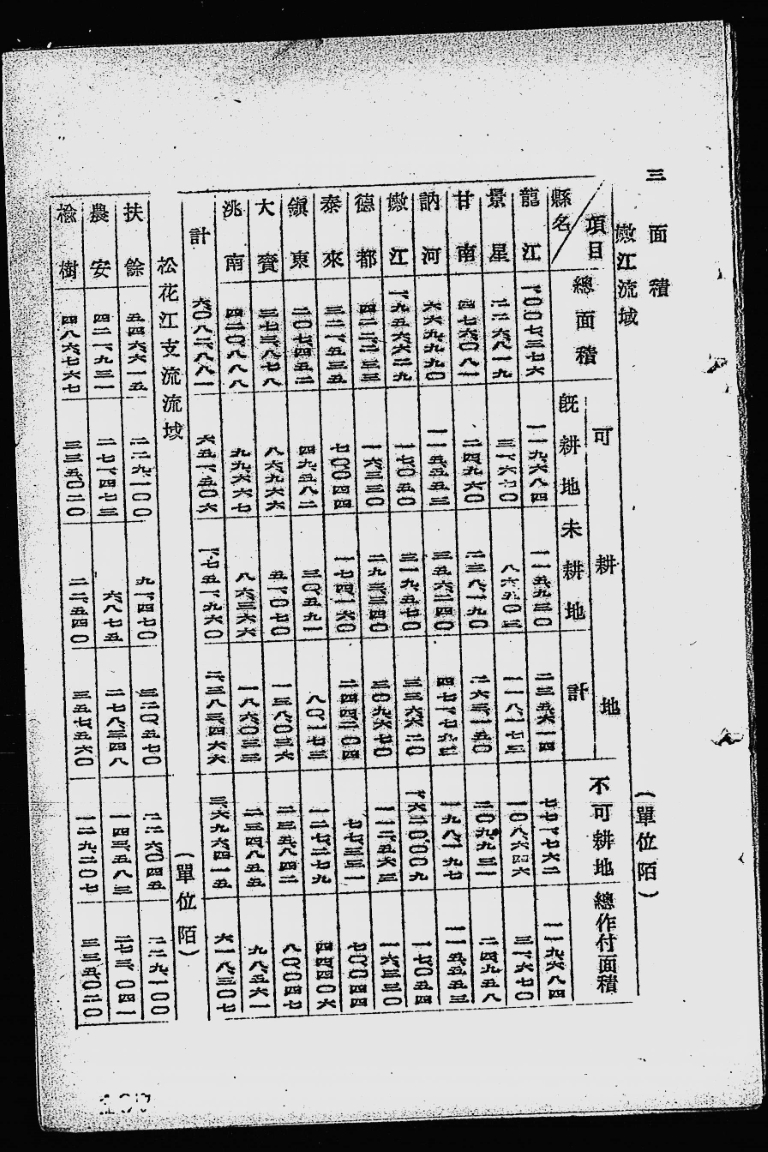 三　面積
嫩江流域　(單位陌)
縣名　項目　總面積　可耕地　既耕地　未耕地　計　不可耕地　總作付面積
龍江　一、〇〇七、三七六　一一九、六八四　一一五、九三〇　二三五、六一四　七七一、七六二　一一九、六八四
景星　二二六、八一九　三一、六七〇　八六、五〇三　一一八、一七三　一〇八、六四六　三一、六七〇
甘南　四七六、〇八一　二四、九六〇　二三八、一九〇　二六三、一五〇　二〇九、九三一　二四、九五八
訥河　六六九、九九〇　一一五、五五三　三五六、二四〇　四七一、七九三　一九八、一九七　一一五、五五三
嫩江　一、九五六、六二九　一七、〇五〇　三一九、五七〇　三三六、六二〇　一、六二〇、〇〇九　一七、〇五四
德都　四二二、二三三　一六、三三〇　二九三、三四〇　三〇九、六七〇　一一二、五六三　一六、三三〇
泰來　三二一、五三五　七〇、〇四四　一七四、一六〇　二四四、二〇四　七七、三三一　七〇、〇四四
鎭東　二〇七、四五二　四九、五八二　三〇、五九一　八〇、一七三　一二七、二七九　四四、四〇六
大賚　三七三、八七八　八六、九六六　五一、〇七〇　一三八、〇三六　二三五、八四二　八〇、〇四七
洮南　四二〇、八八八　九九、六六七　八六、三六六　一八六、〇三三　二三四、八五五　九八、五六一
計　六、〇八二、八八一　六三一、五〇六　一、七五一、九六〇　二、三八三、四六六　三、六九六、四一五　六一八、三〇七
松花江支流流域　(單位陌)
扶餘　五四六、六一五　二二九、一〇〇　九一、四七〇　三二〇、五七〇　二二六、〇四五　二二九、一〇〇
農安　四二一、九三一　二七一、四七三　六、八七五　二七八、三四八　一四三、五八三　二七三、〇四一
楡樹　四八六、七六七　三三五、〇二〇　二二、五四〇　三五七、五六〇　一二九、二〇七　三三五、〇二〇